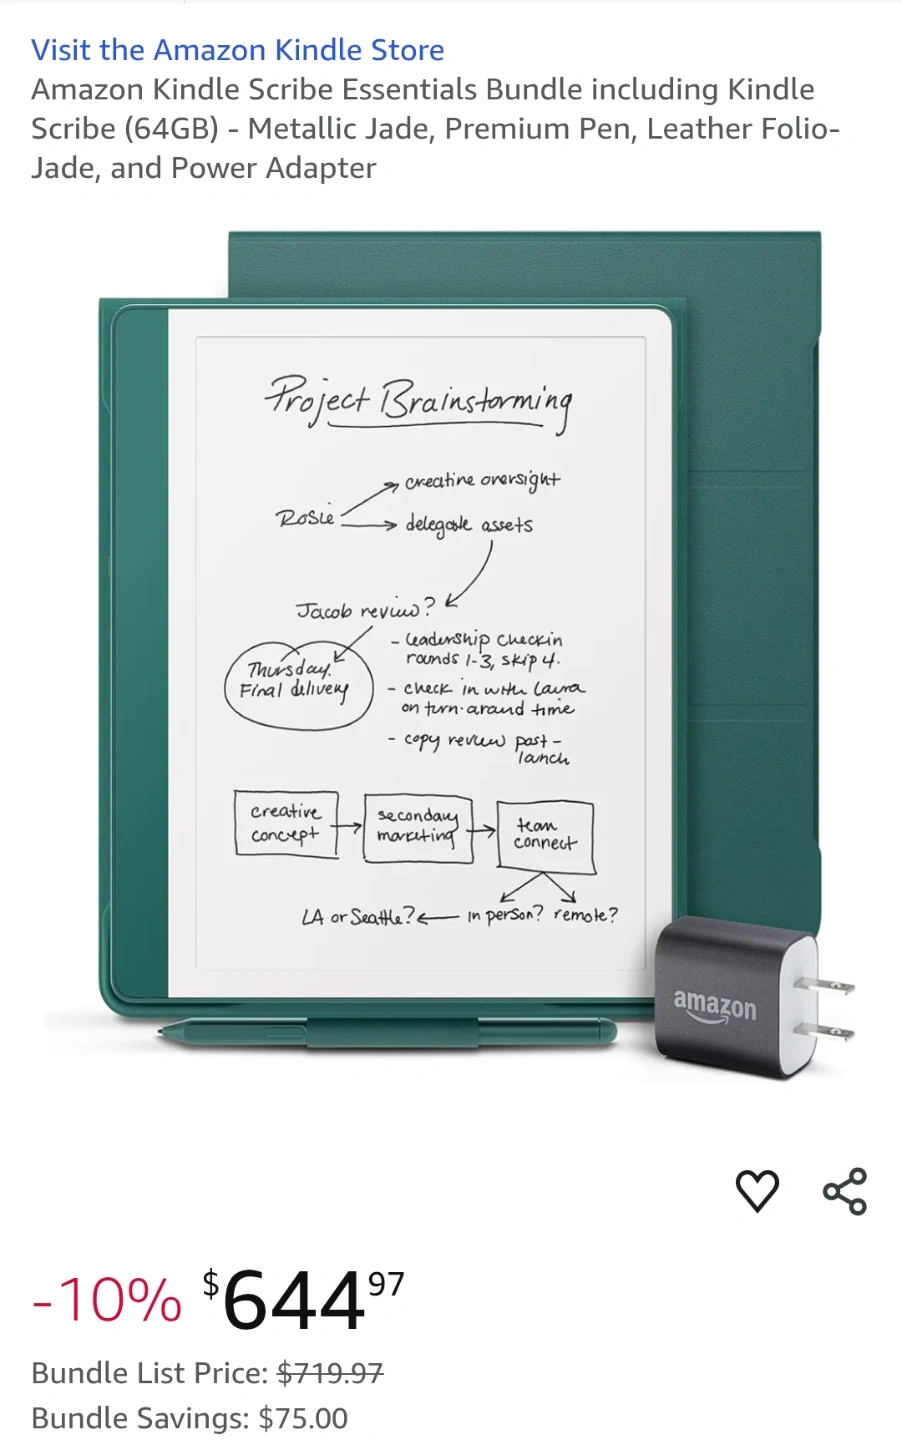 Visit the Amazon Kindle Store
Amazon Kindle Scribe Essentials Bundle including Kindle
Scribe (64GB) - Metallic Jade, Premium Pen, Leather Folio-
Jade, and Power Adapter
Project Brainstorming
creative oversight
Rosie
delegate assets
Jacob review?
- leadership checkin
rounds 1-3, skip 4.
Thursday.
Final delivery
- check in with Laura
on turn-around time
- copy review past-
launch
creative
concept
secondary
marketing
team
connect
LA or Seattle?
in person? remote?
amazon
-10% $644.97
Bundle List Price: $719.97
Bundle Savings: $75.00